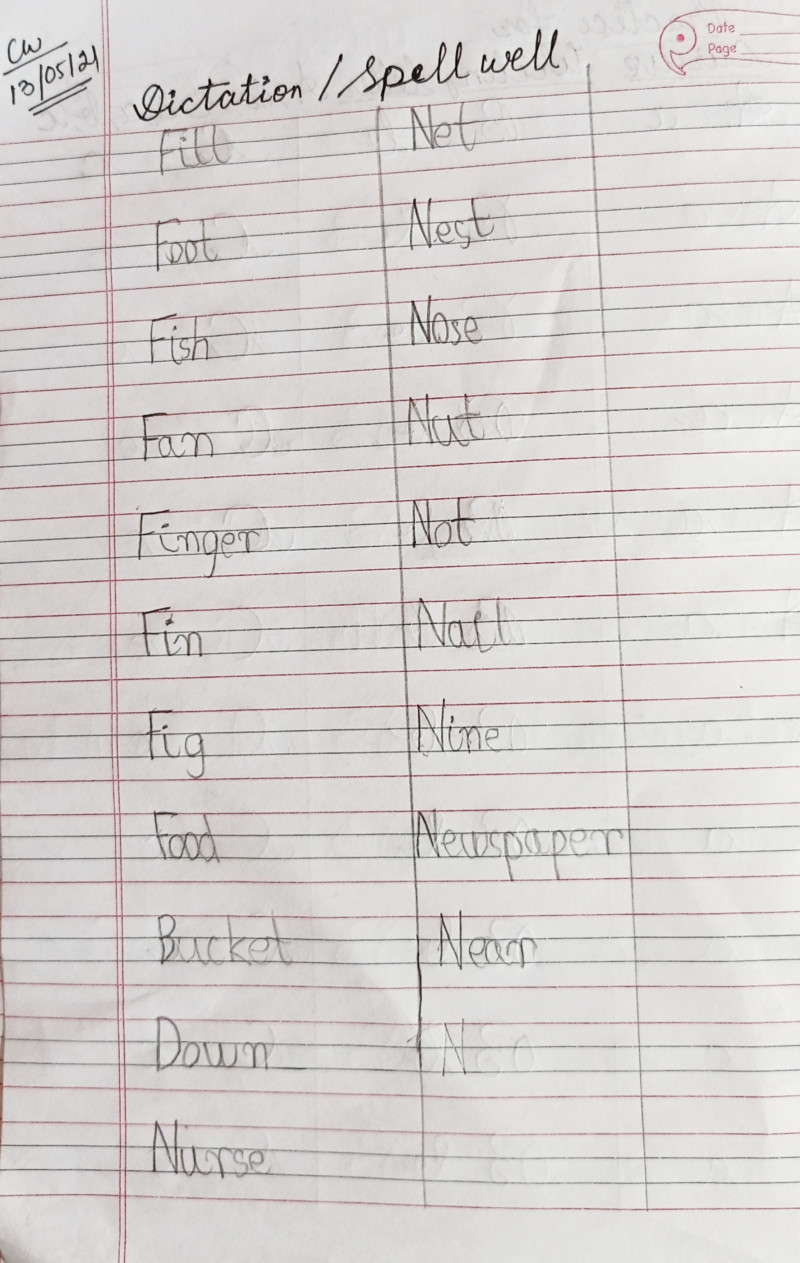 CW
13/05/21
Date
Page
Dictation / Spell well
Fill Net
Foot Nest
Fish Nose
Fan Nut
Finger Not
Fin Nail
Fig Nine
Food Newspaper
Bucket Near
Down N
Nurse